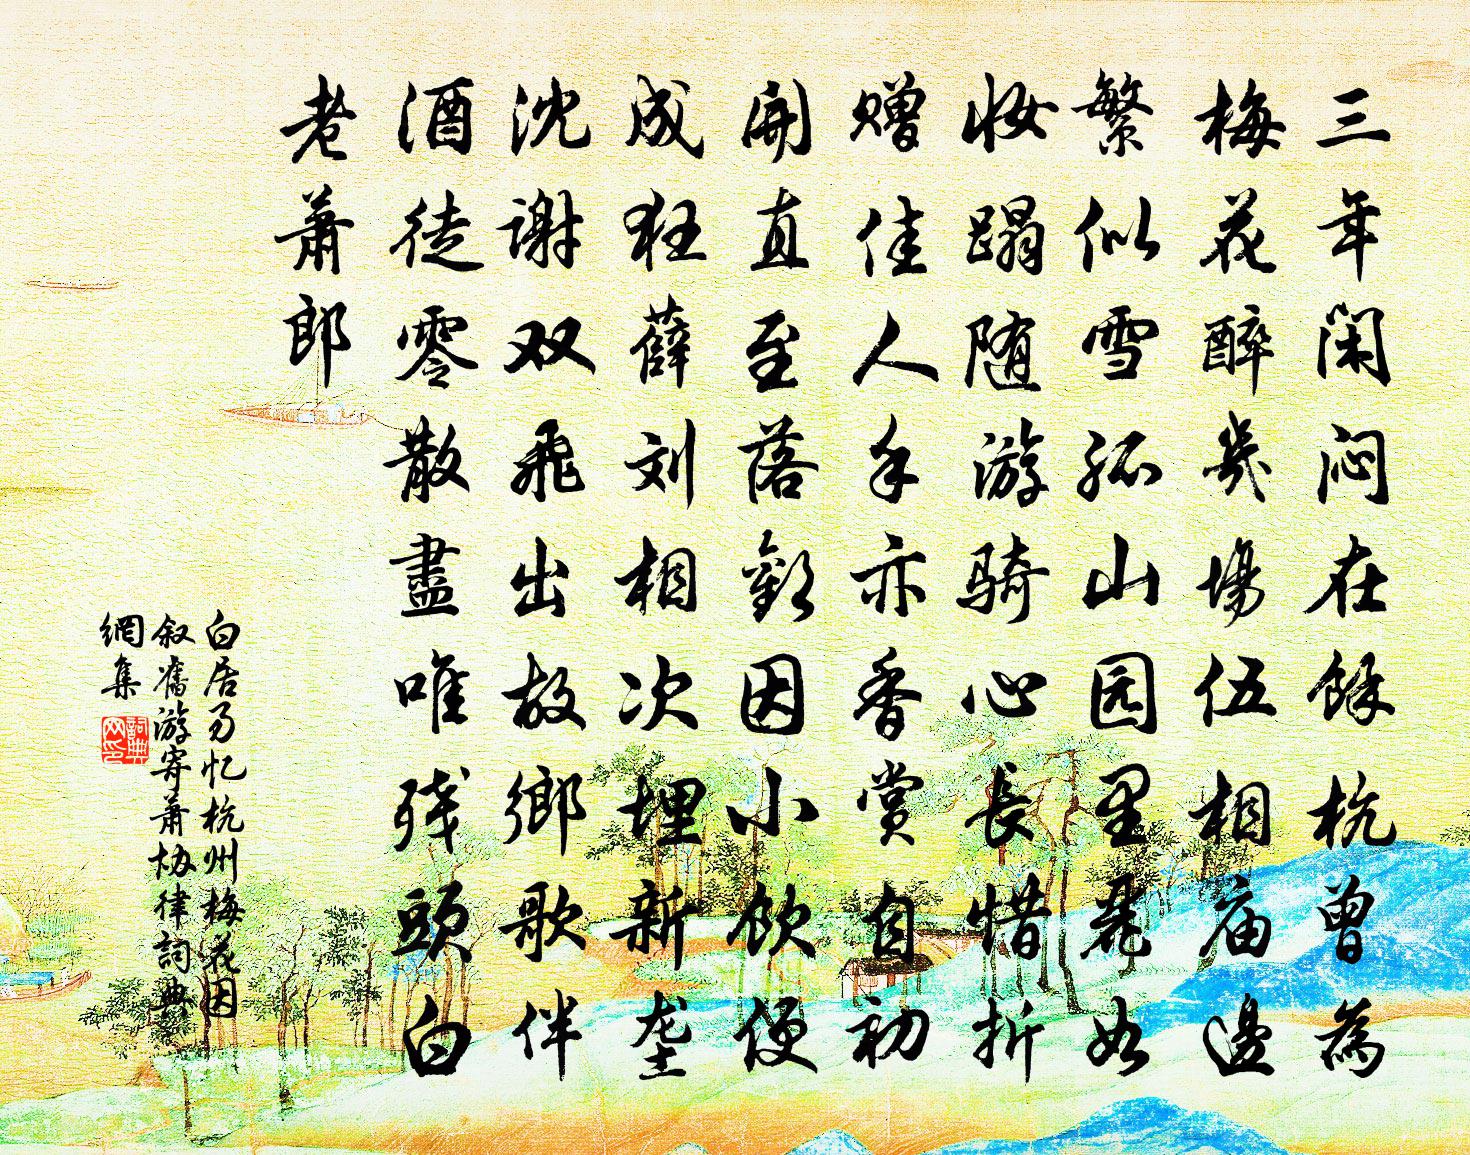 三年闲闷在餘杭曾為
梅花醉幾場伍相庙邊
繁似雪孤山园里麗如
妆蹋随游骑心長惜折
赠佳人手亦香赏自初
開直至落歡因小飲便
成狂薛刘相次埋新垄
沈谢双飛出故鄉歌伴
酒徒零散盡唯残頭白
老萧郎
白居易忆杭州梅花因
叙舊游寄萧协律詞典
網集
詞典网印